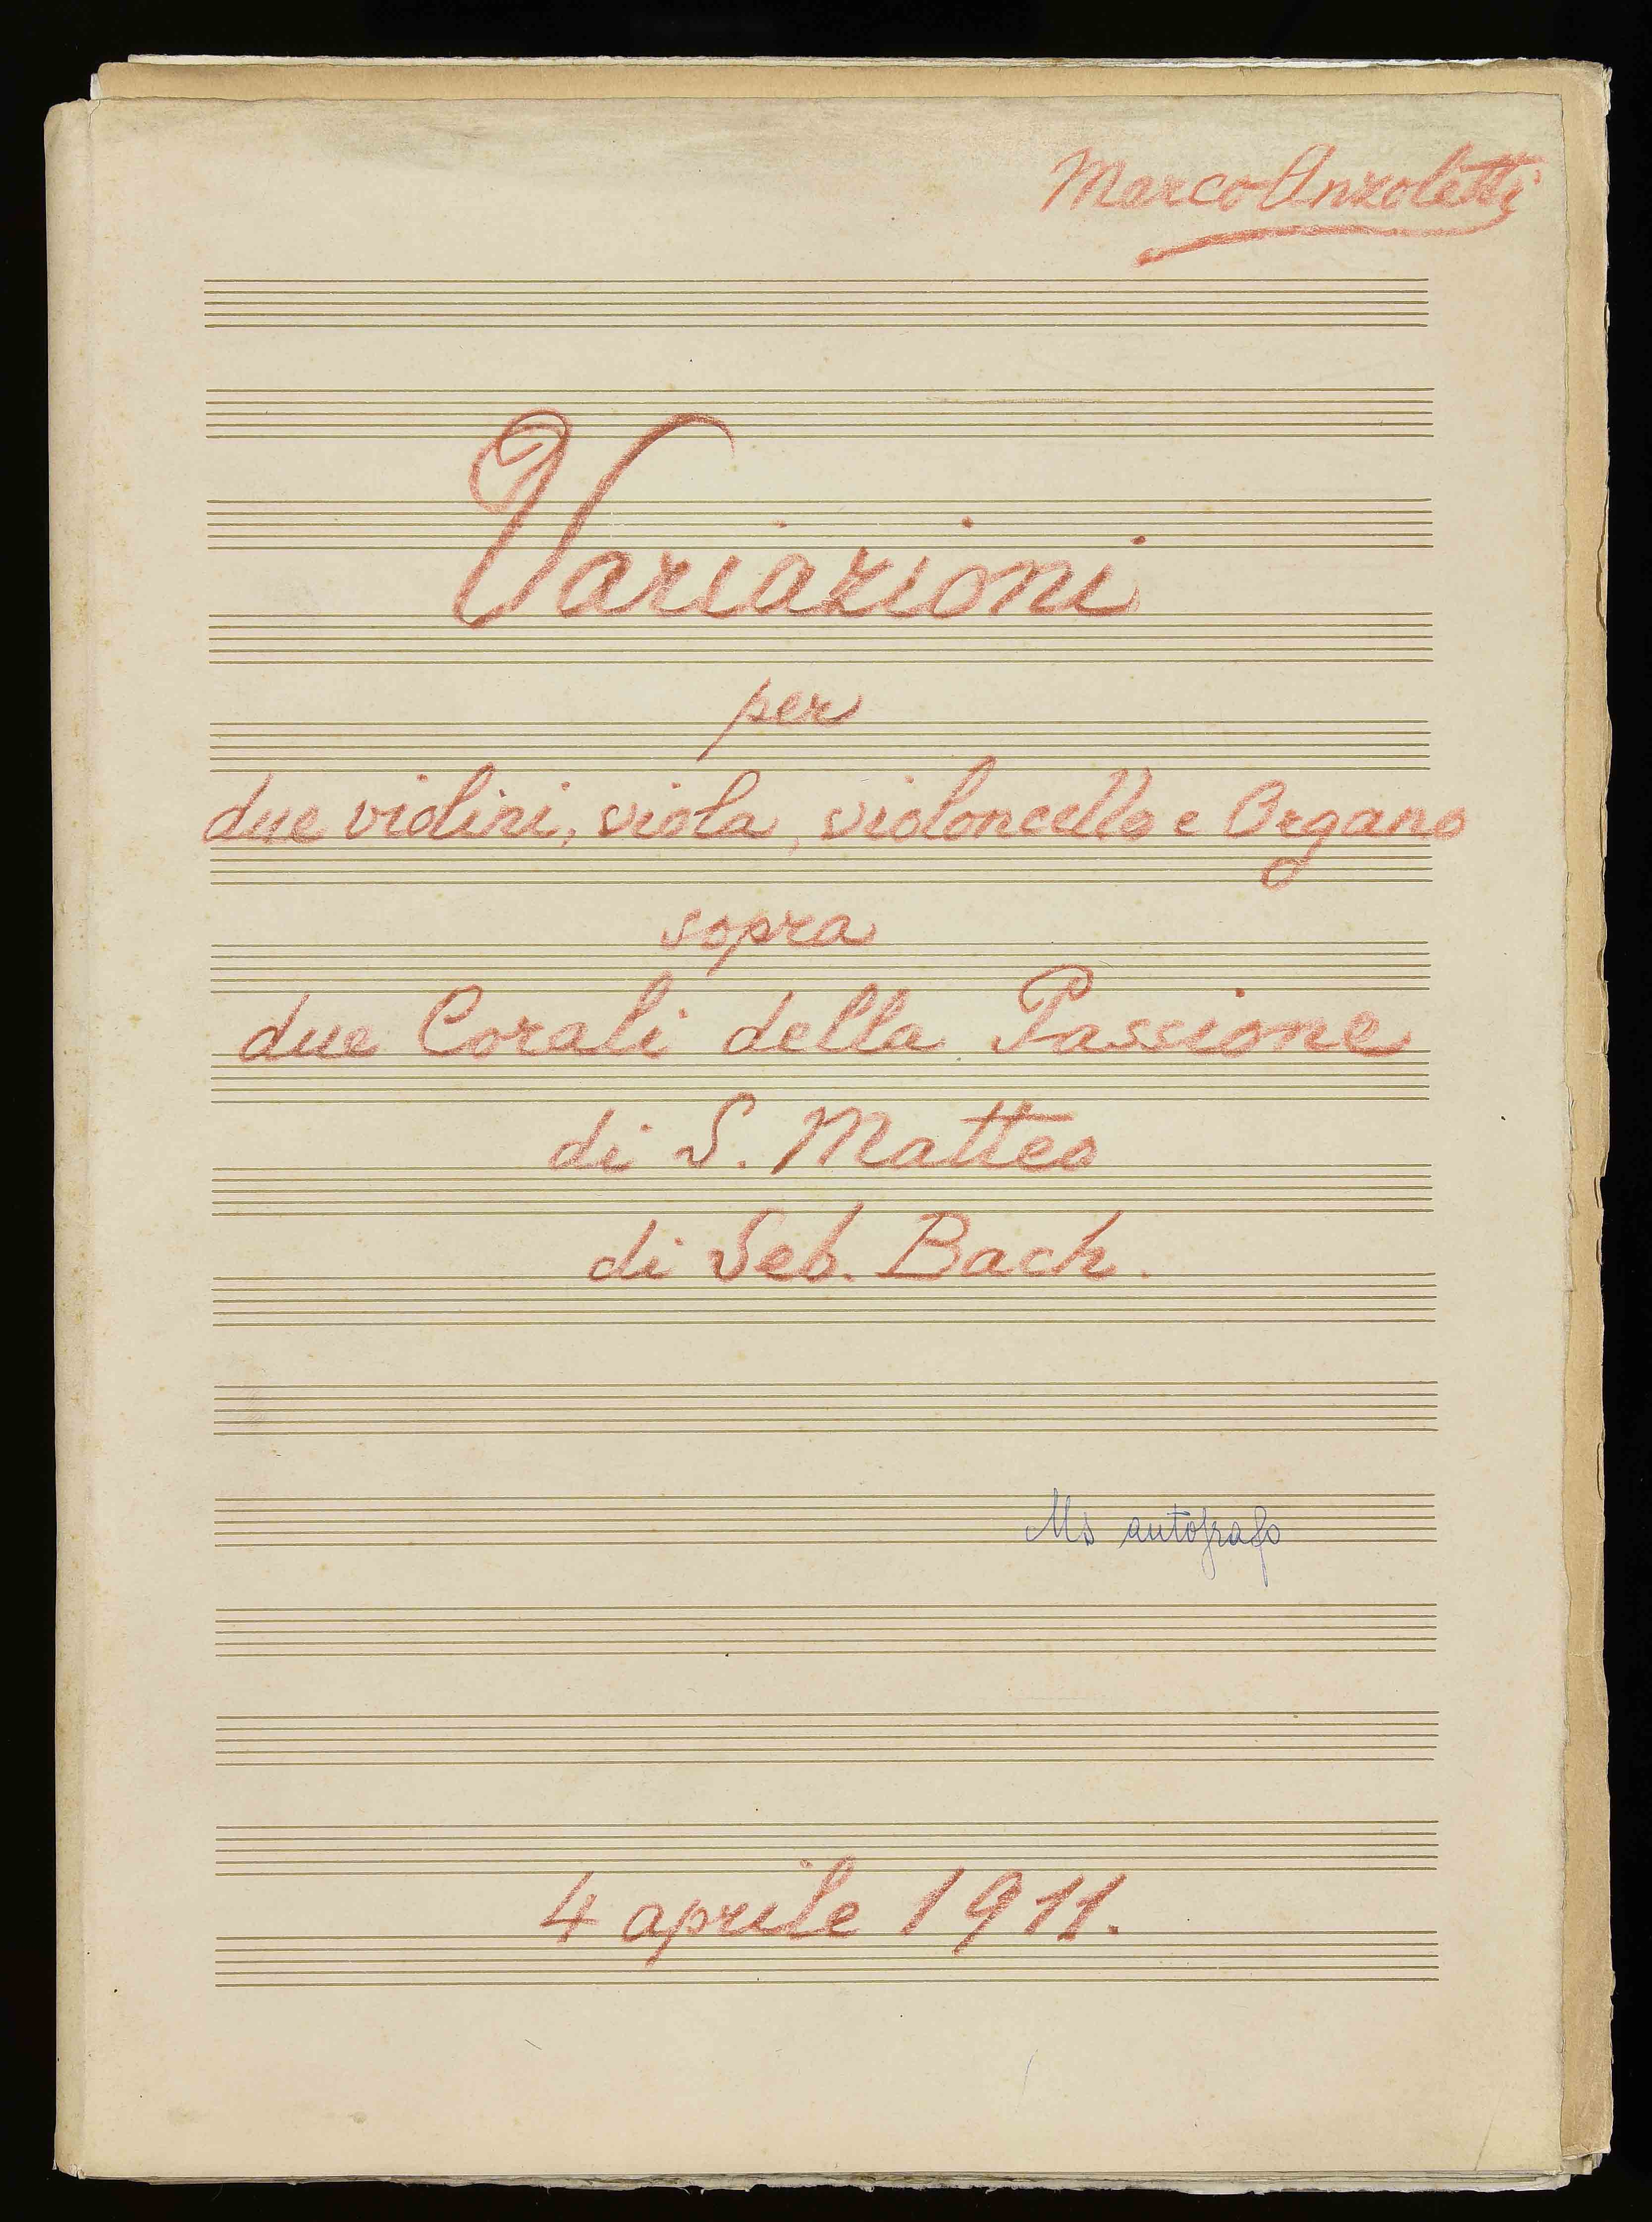 Marco Anzoletti
Variazioni
per
due violini, viola, violoncello e Organo
sopra
due Corali della Passione
di S. Matteo
di Seb. Bach.
Ms autografo
4 aprile 1911.